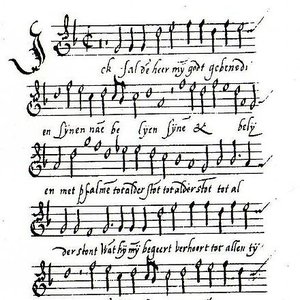 Ick sal de heer mÿ godt gebenedi
en sÿnen nae be lyen sÿne & belÿ
en met psalme tot alder stot tot alderstōt tot al
der stont Wat hÿ mÿ begeert verhoert tot allen tÿ